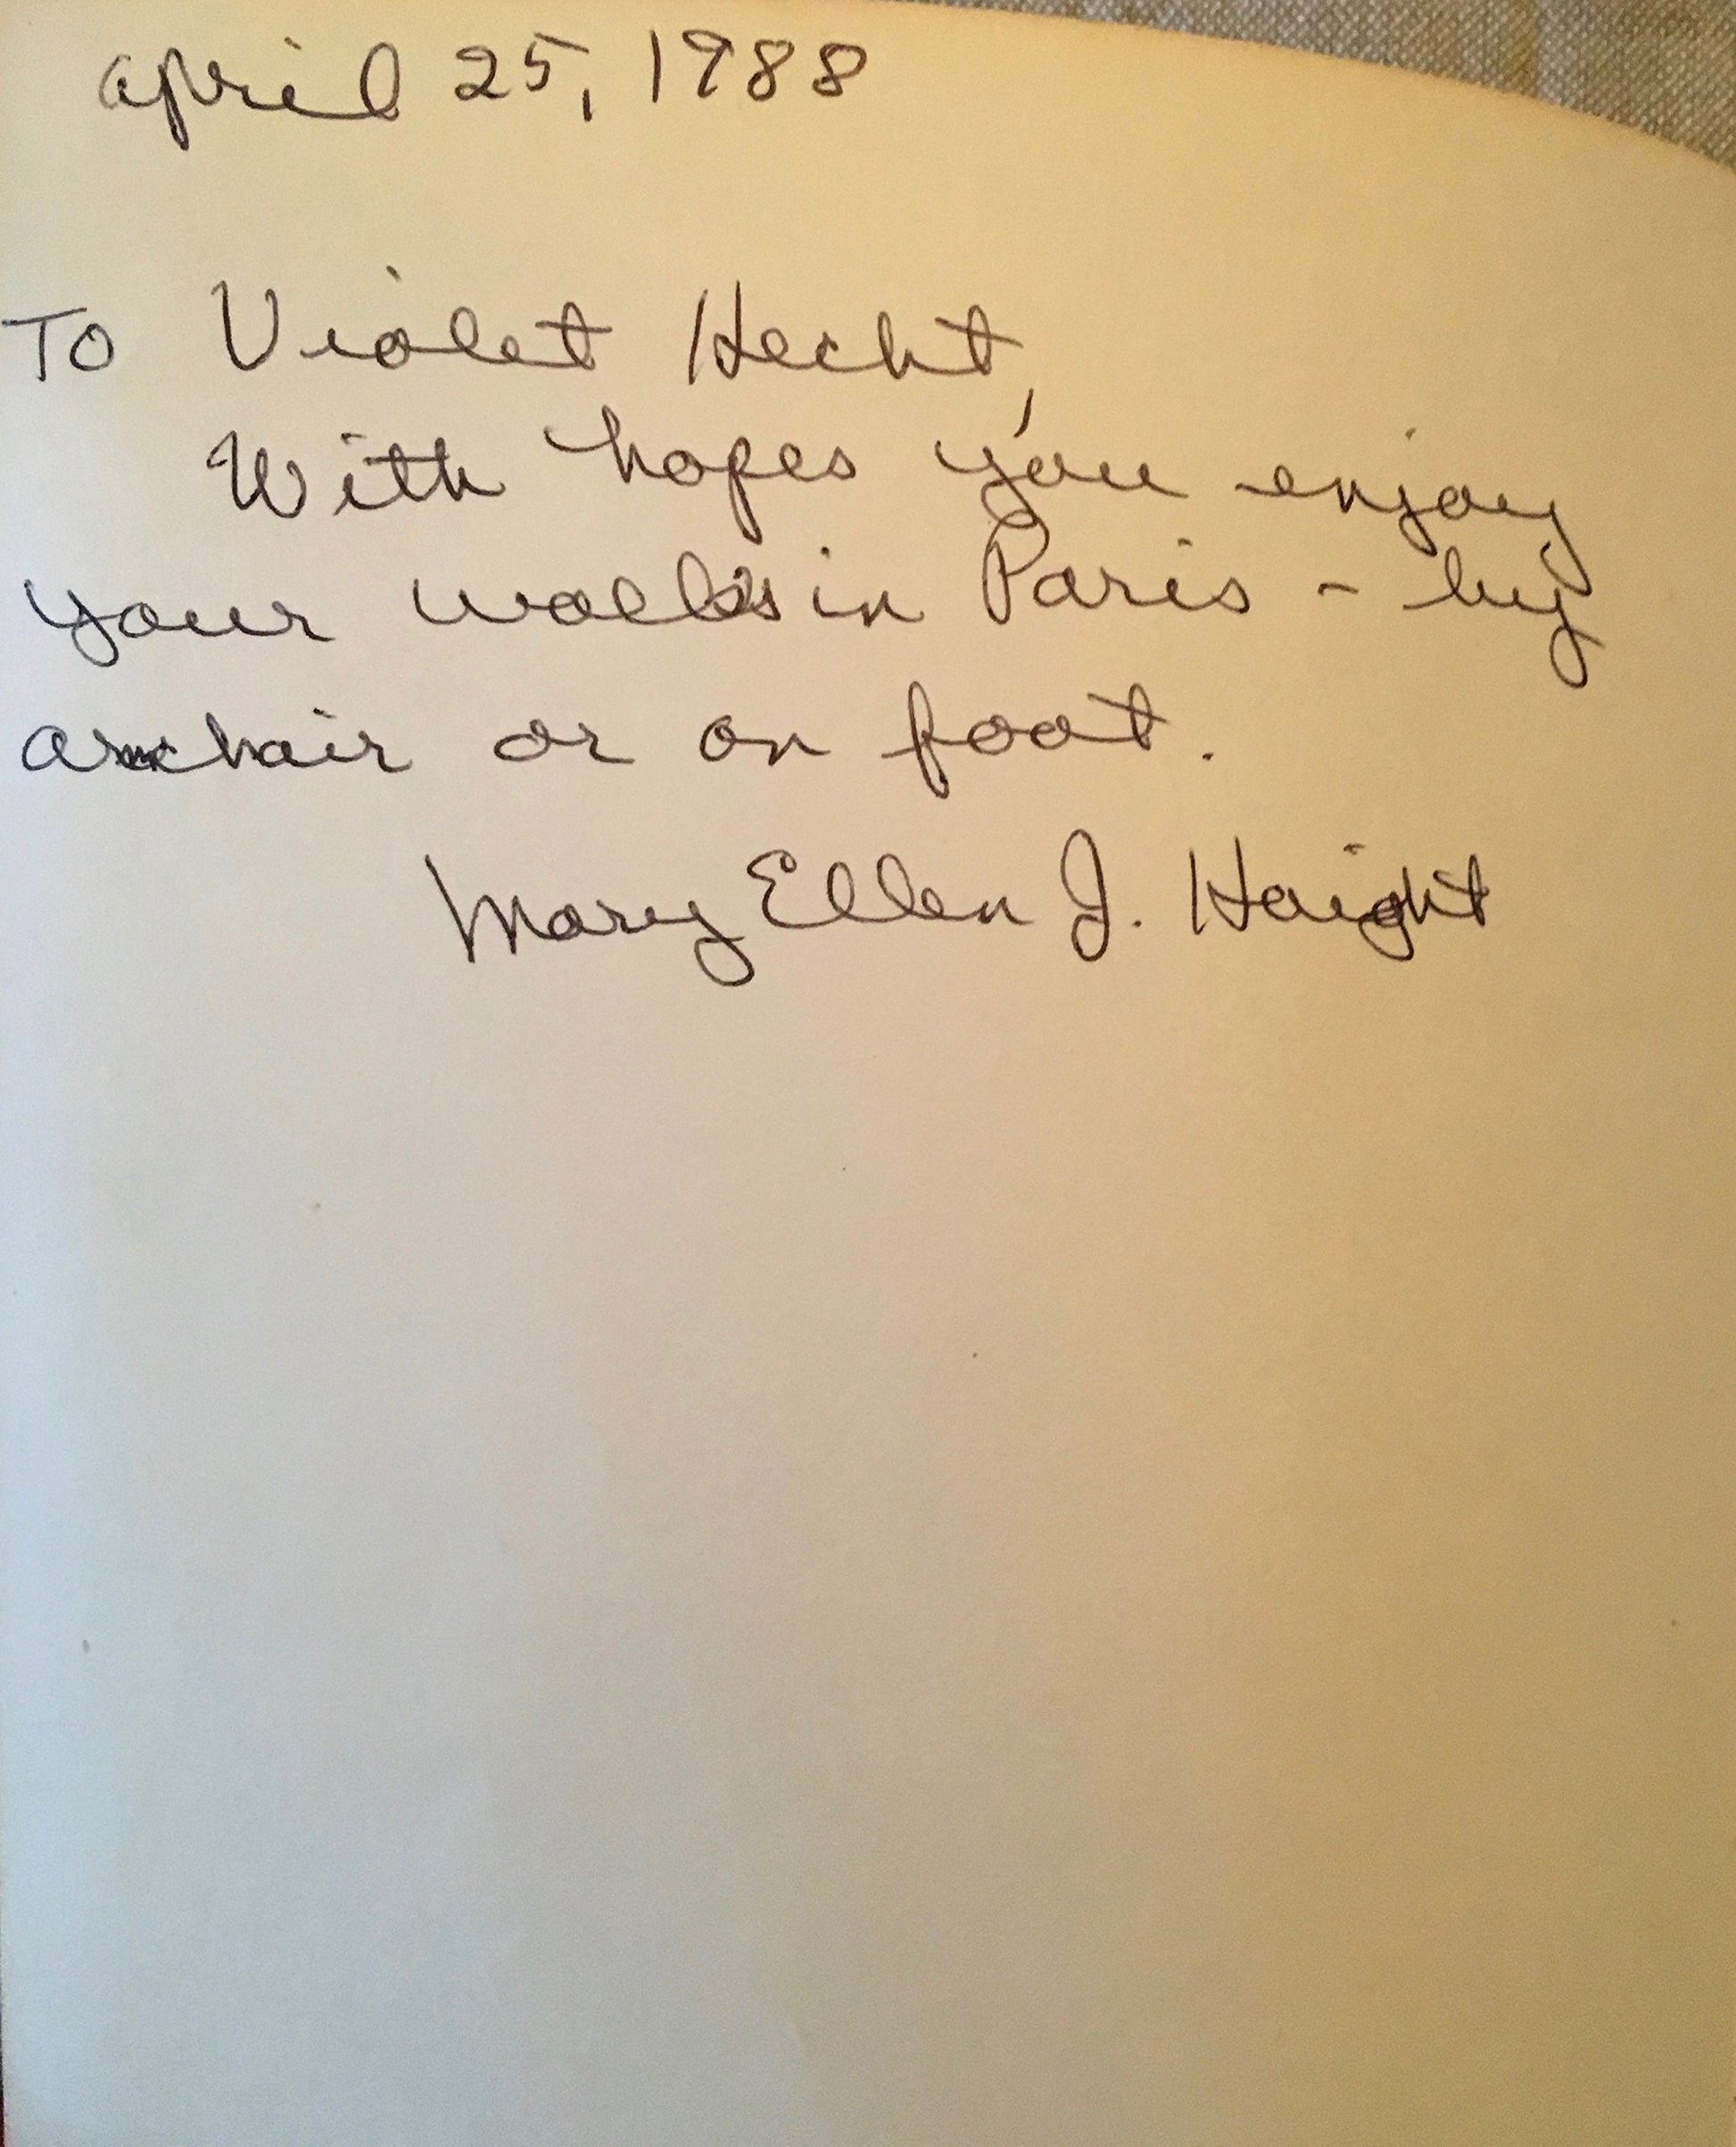 April 25, 1988
To Violet Hecht,
With hopes you enjoy
your walks in Paris - by
armchair or on foot.
Mary Ellen J. Haight